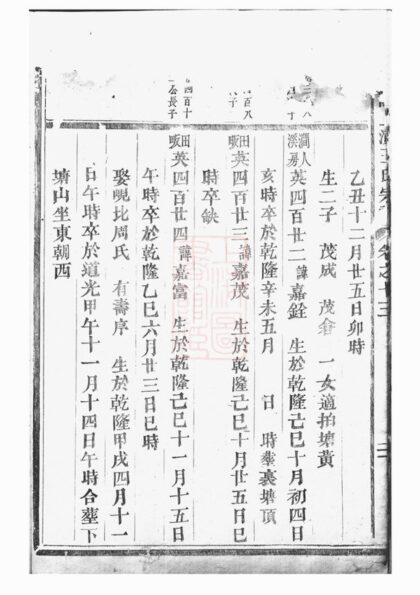 乙丑十二月廿五日卯時
生二子 茂成 茂 一女適拍塘黃
英四百廿二諱嘉銓 生於乾隆己巳十月初四日
亥時卒於乾隆辛未五月 日 時葬裏塘頂
英四百廿三諱嘉茂 生於乾隆己巳十月廿五日巳
時卒缺
英四百廿四諱嘉富 生於乾隆己巳十一月十五日
午時卒於乾隆乙巳六月廿三日巳時
娶峴比周氏 有壽序 生於乾隆甲戌四月十一
日午時卒於道光甲午十一月十四日午時合塟下
塘山坐東朝西